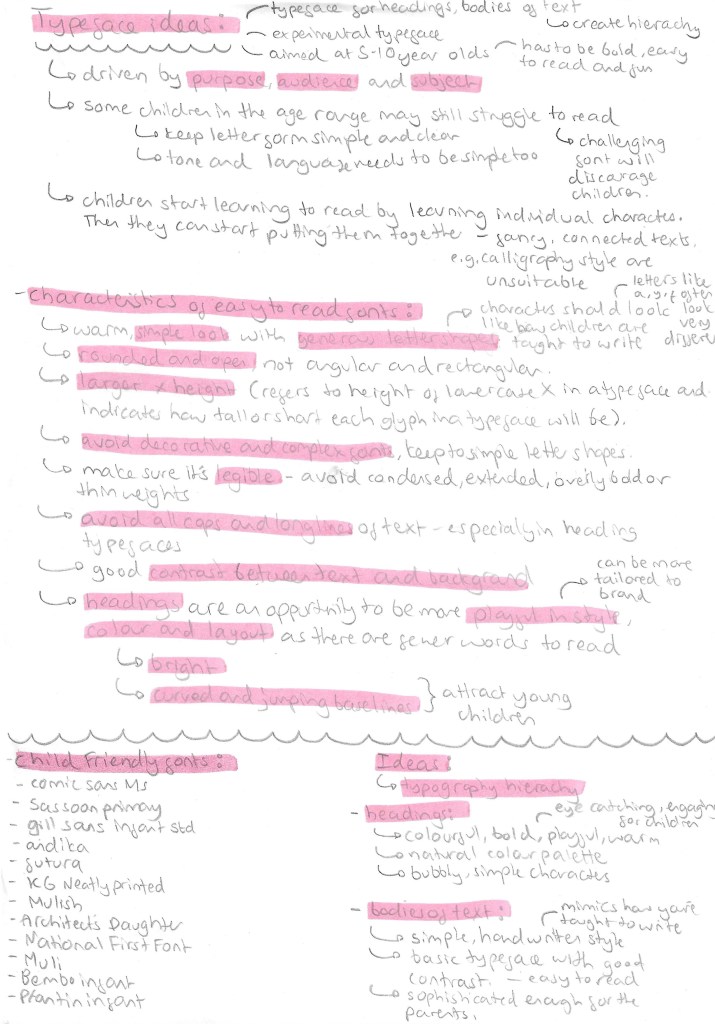 Typeface ideas:
typeface for headings, bodies of text
create hierachy
- experimental typeface
aimed at 5-10 year olds
has to be bold, easy
to read and fun
driven by purpose, audience and subject
some children in the age range may still struggle to read
keep letterform simple and clear
tone and language needs to be simple too
challenging
font will
discourage
children.
children start learning to read by learning individual charactes.
Then they can start putting them together - fancy, connected texts.
e.g. calligraphy style are
unsuitable
- characteristics of easy to read fonts:
warm, simple look with generous letter shapes
charactes should look
like how children are
taught to write
letters like
a, y, f often
look
very
rounded and open, not angular and rectangular.
larger x height (refers to height of lowercase X in a typeface and
indicates how tall or short each glyph in a typeface will be).
avoid decorative and complex fonts, keep to simple letter shapes.
make sure it's legible - avoid condensed, extended, overly bold or
thin weights
avoid all caps and long lines of text - especialy in heading
typefaces
good contrast between text and background
headings are an opportunity to be more playful in style,
colour and layout as there are fewer words to read
can be more
tailored to
brand
bright
curved and jumping baselines } attract young
children
- Child Friendly fonts:
- comic sans MS
- Sassoon primary
- gill sans infant std
- andika
- futura
- KG Neatly printed
- Mulish
- Architects Daughter
- National First Font
- Muli
- Bembo infant
- Plantin infant
Ideas:
typography hierachy
- headings:
eye catching, engaging
for children
colourful, bold, playful, warm
natural colour palette
bubbly, simple charactes
- bodies of text:
mimics how you're
taught to write
simple, handwritten style
basic typeface with good
contrast. - easy to read
sophisticated enough for the
parents.